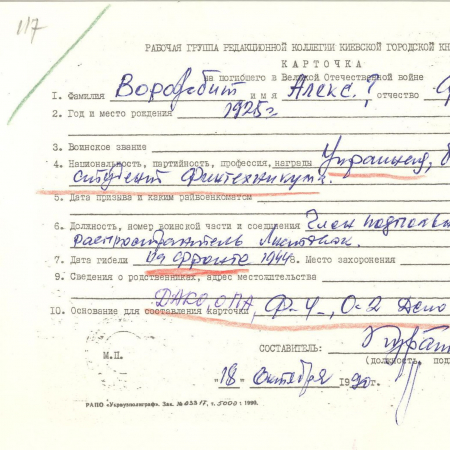 117
РАБОЧАЯ ГРУППА РЕДАКЦИОННОЙ КОЛЛЕГИИ КИЕВСКОЙ ГОРОДСКОЙ КН
КАРТОЧКА
на погибшего в Великой Отечественной войне
1. Фамилия Воробит имя Алекс.? отчество
2. Год и место рождения 1925г
3. Воинское звание
4. Национальность, партийность, профессия, награды Украинец,
студент Финтехникум.
5. Дата призыва и каким райвоенкоматом
6. Должность, номер воинской части и соединения Член подполь
распространитель Листовок.
7. Дата гибели на фронте 1944 8. Место захоронения
9. Сведения о родственниках, адрес местожительства
10. Основание для составления карточки ДАКО ОПА, Ф-4, О-2 Дело
СОСТАВИТЕЛЬ:
М.П. (должность, под
"18" Октября 1990г.
РАПО «Укрвузполиграф». Зак. т. 5000